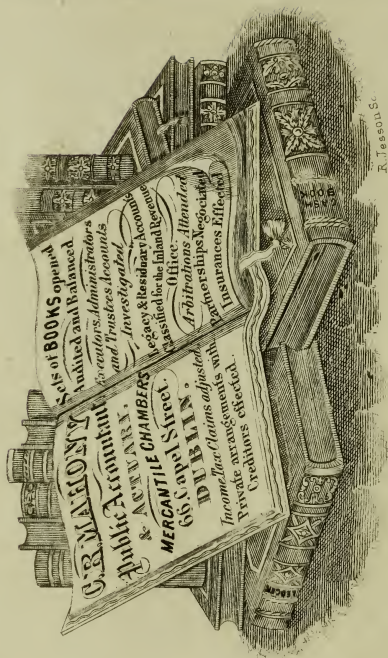 C. B. MAHONY
Public Accountant
& ACTUARY.
MERCANTILE CHAMBERS
66, Capel Street.
DUBLIN.
Income Tax Claims adjusted.
Private arrangements with
Creditors effected.
Sets of BOOKS opened
Audited and Balanced
Executors, Administrators
and Trustees Accounts
Investigated
Legacy & Residuary Accounts
Classified for the Inland Revenue
Office.
Arbitrations Attended
Partnerships Negociated
Insurances Effected
CASH
BOOK
LEDGER
R. Jesson Sc.